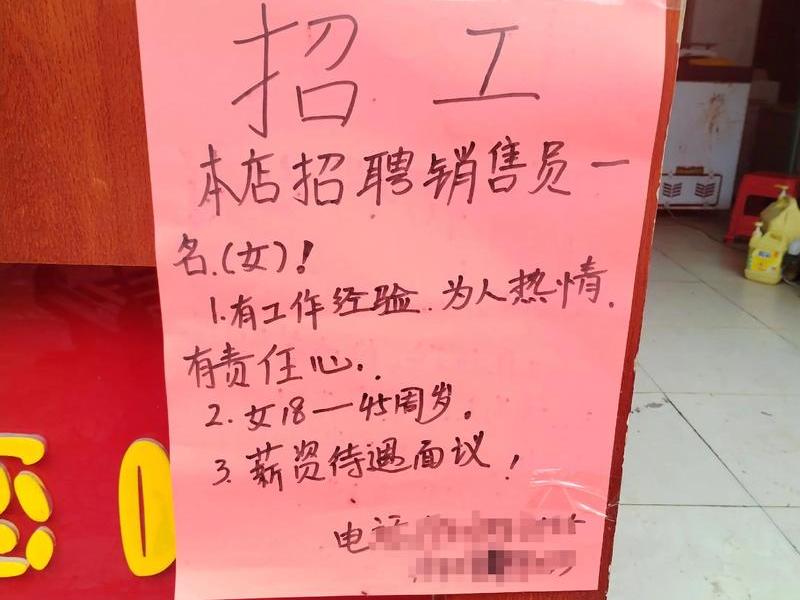 招工
本店招聘销售员一
名.(女)!
1.有工作经验.为人热情.
有责任心..
2.女18—45周岁。
3.薪资待遇面议!
电话